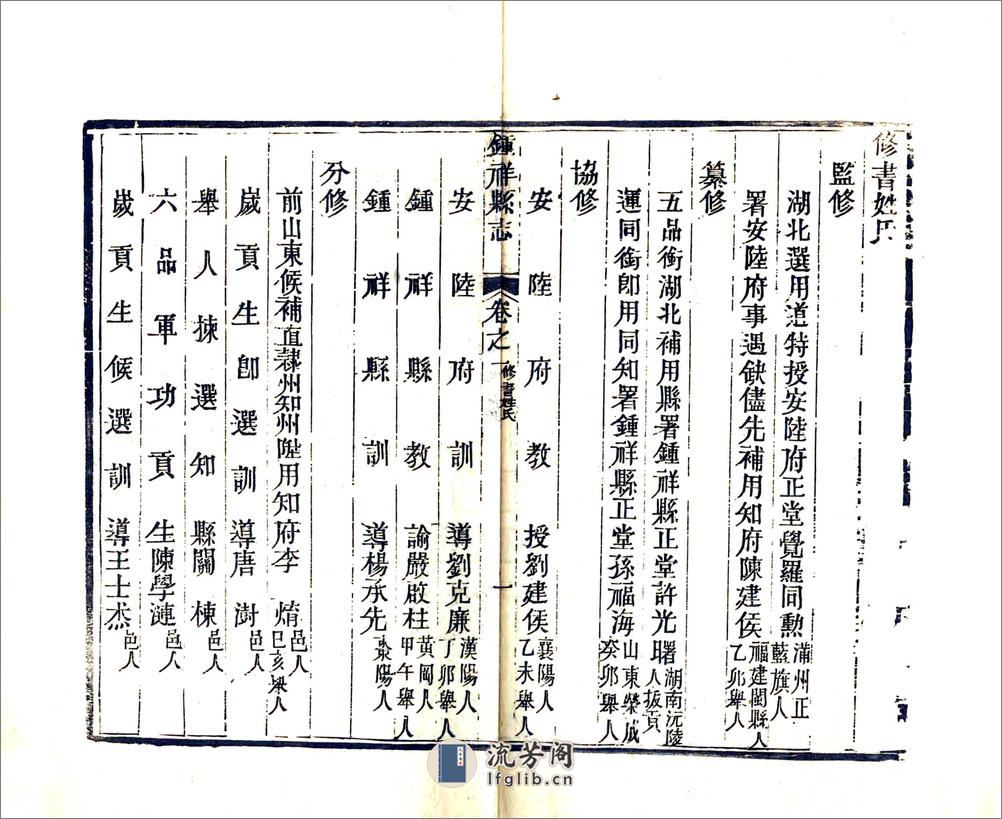 修書姓氏
監修
湖北選用道特授安陸府正堂覺羅同勲滿州正藍旗人
署安陸府事遇缺儘先補用知府陳建侯福建閩縣人乙卯舉人
纂修
五品銜湖北補用縣署鍾祥縣正堂許光曙湖南沅陵人拔貢
運同銜卽用同知署鍾祥縣正堂孫福海山東榮成癸卯舉人
協修
安陸府教授劉建侯襄陽人乙未舉人
鍾祥縣志 卷之 修書姓氏 一
安陸府訓導劉克廉漢陽人丁卯舉人
鍾祥縣教諭嚴啟柱黃岡人甲午舉人
鍾祥縣訓導楊承先棗陽人
分修
前山東候補直隸州知州陞用知府李焴邑人巳亥舉人
歲貢生卽選訓導唐澍邑人
舉人揀選知縣關棟邑人
六品軍功貢生陳學漣邑人
歲貢生候選訓導王士杰邑人
流芳阁
lfglib.cn